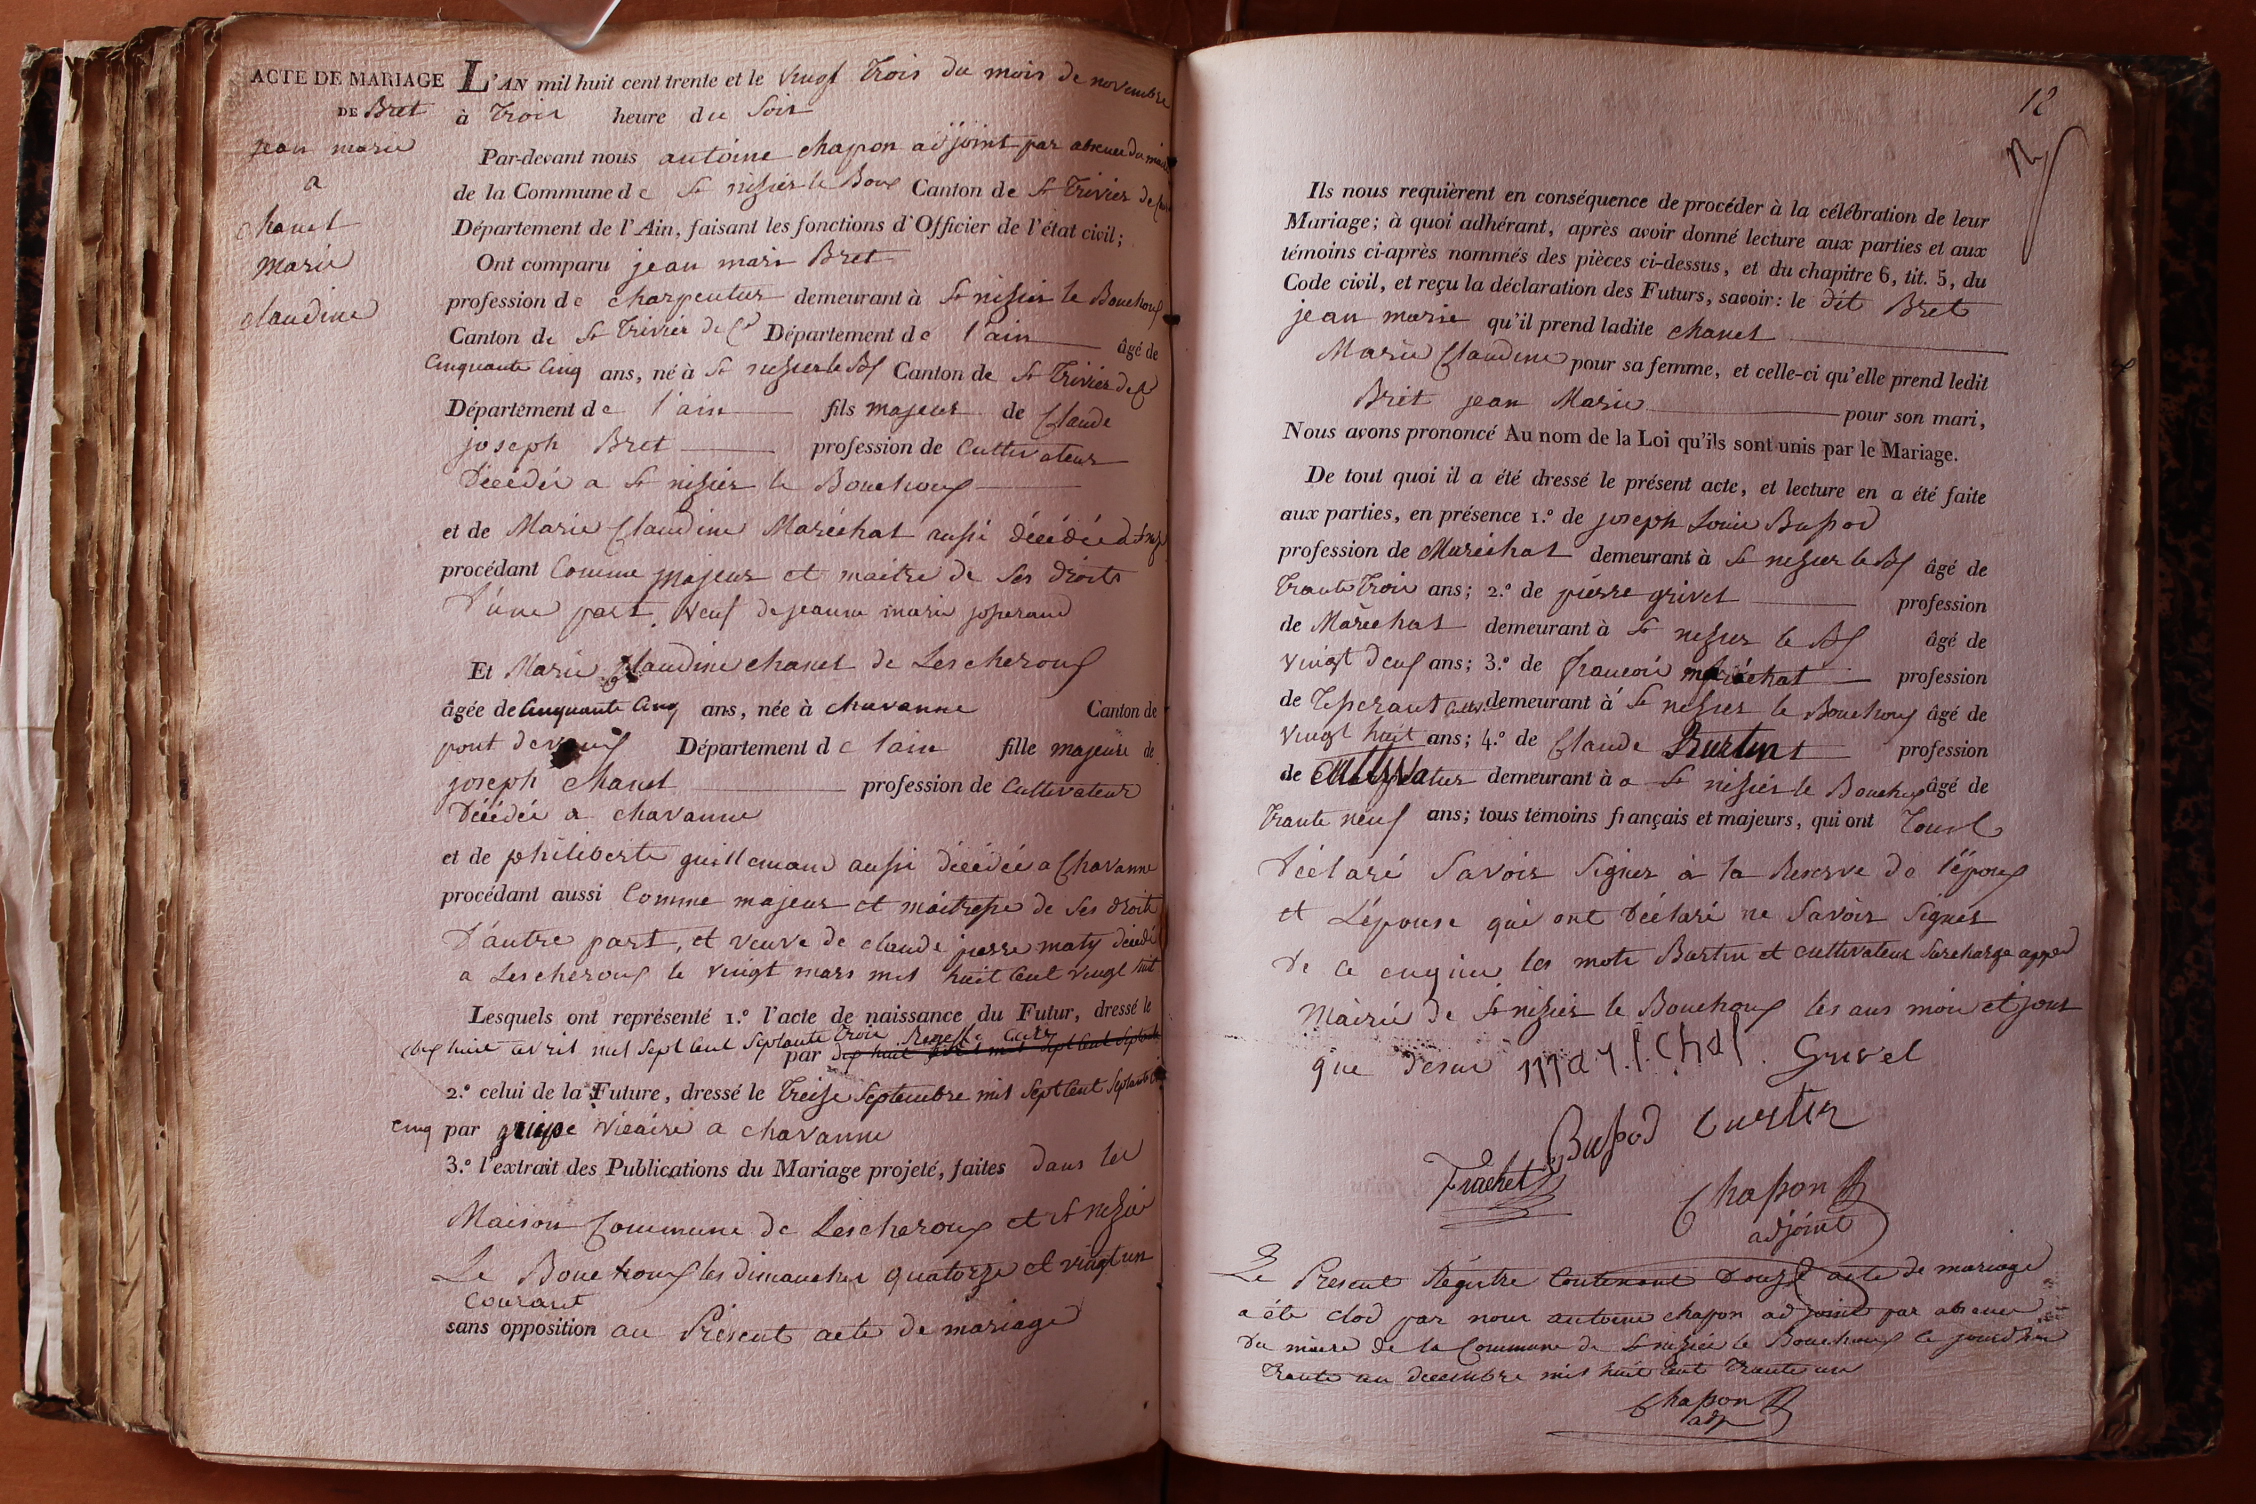 ACTE DE MARIAGE
DE Bret
jean marie
a
chanel
Marie
claudine
L'AN mil huit cent trente et le vingt trois du mois de novembre
à trois heure du soir
Par-devant nous antoine chapon adjoint par absence du maire
de la Commune de St nisier le Boux Canton de St trivier de
Département de l'Ain, faisant les fonctions d'Officier de l'état civil;
Ont comparu jean mari Bret
profession de charpentier demeurant à St nisier le Bouchoux
Canton de St trivier de Département de l'ain âgé de
Cinquante Cinq ans, né à St nisier le Canton de St Trivier de
Département de l'ain fils majeur de Claude
joseph Bret profession de Cultivateur
Décédér a St nisier le Bouchoux
et de Marie Claudine Maréchal aussi décédée a
procédant Comme majeur et maitre de ses droits
D'une part, veuf de jeanne marie josserand
Et Marie Claudine chanel de Lescheroux
âgée de Cinquante Cinq ans, née à chavanne Canton de
pont devaux Département de l'ain fille majeure de
joseph Chanel profession de Cultivateur
Décédée a chavanne
et de philiberte guillemaud aussi décédée a Chavanne
procédant aussi Comme majeur et maitresse de ses droits
D'autre part, et veuve de claude pierre maty décédé
a Lescheroux le vingt mars mil huit Cent vingt huit
Lesquels ont représenté 1.º l'acte de naissance du Futur, dressé le
dix huit avril mil sept Cent septante trois
par dix huit avril mil sept Cent septante
2.º celui de la Future, dressé le treise septembre mil sept Cent septante
Cinq par vicaire a chavanne
3.º l'extrait des Publications du Mariage projeté, faites dans les
Maison Commune de Lescheroux et st nisier
Le Bouchoux les dimanches quatorze et vingt un
courant
sans opposition au Présent acte de mariage
12
Ils nous requièrent en conséquence de procéder à la célébration de leur
Mariage; à quoi adhérant, après avoir donné lecture aux parties et aux
témoins ci-après nommés des pièces ci-dessus, et du chapitre 6, tit. 5, du
Code civil, et reçu la déclaration des Futurs, savoir: le dit Bret
jean marie qu'il prend ladite chanel
Marie Claudine pour sa femme, et celle-ci qu'elle prend ledit
Bret jean Marie pour son mari,
Nous avons prononcé Au nom de la Loi qu'ils sont unis par le Mariage.
De tout quoi il a été dressé le présent acte, et lecture en a été faite
aux parties, en présence 1.º de joseph Louis Bussod
profession de Maréchal demeurant à St nisier le âgé de
trante trois ans; 2.º de pierre grivel profession
de Maréchal demeurant à St nisier le âgé de
vingt deux ans; 3.º de françois maréchal profession
de demeurant à St nisier le Bouchoux âgé de
vingt huit ans; 4.º de Claude Burtin profession
de cultivateur demeurant à a St nisier le Bouchoux âgé de
trante neuf ans; tous témoins français et majeurs, qui ont tous
Déclaré Savoir Signer à la Reserve de l'époux
et L'épouse qui ont Déclaré ne Savoir Signer
De ce enquiu les mots Burtin et cultivateur surchargé
Mairie de St nisier le Bouchoux les ans mois et jour
que dessus Grivel
Bussod Burtin
Trachet
Chapon
adjoint
Le Présent Régistre Contenant Douze acte de mariage
a été clod par nous antoine chapon adjoint par absence
du maire de la Commune de St nisier le Bouchoux ce jourd'hui
trante un décembre mil huit Cent trante un
Chapon
adj